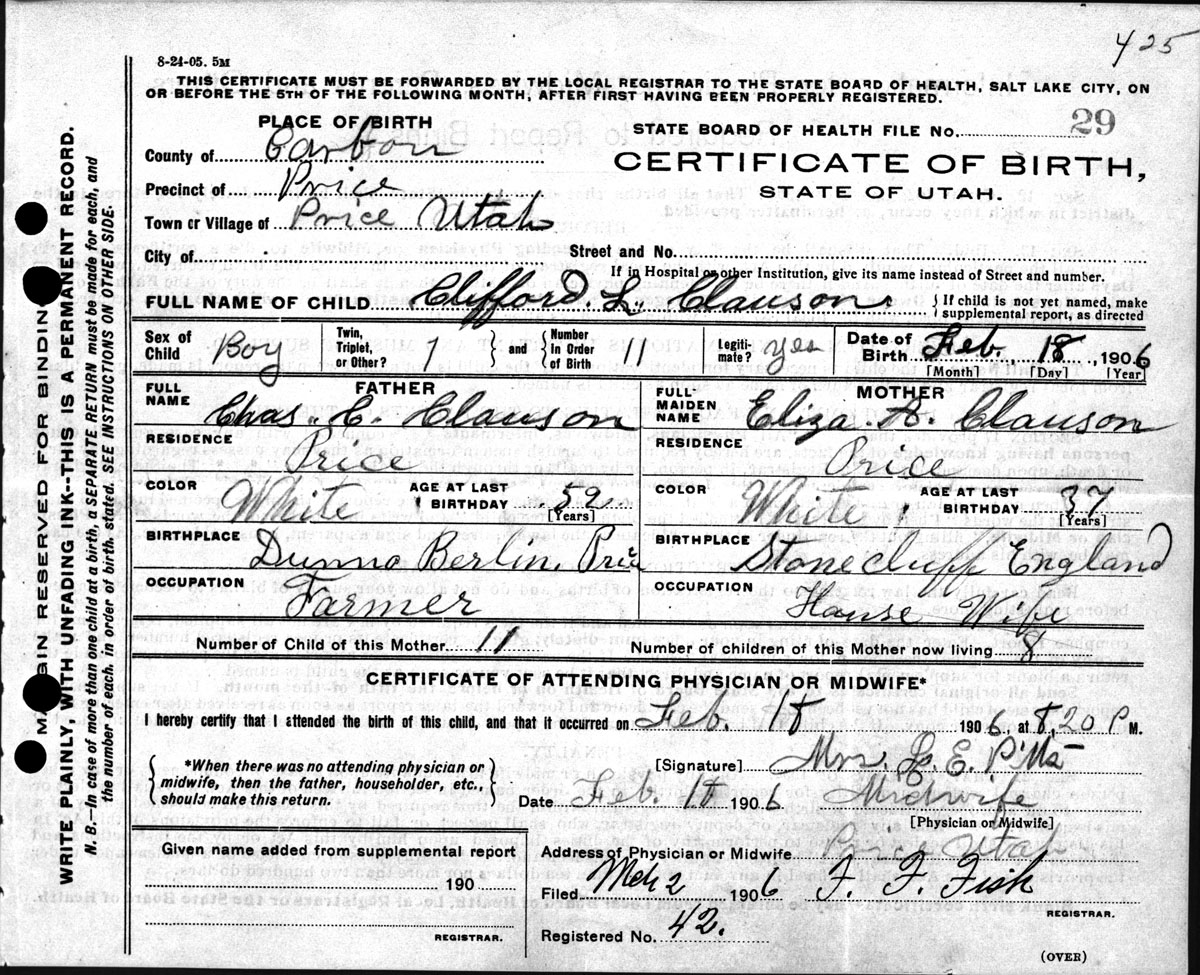 425
8-24-05. 5M
THIS CERTIFICATE MUST BE FORWARDED BY THE LOCAL REGISTRAR TO THE STATE BOARD OF HEALTH, SALT LAKE CITY, ON
OR BEFORE THE 5TH OF THE FOLLOWING MONTH, AFTER FIRST HAVING BEEN PROPERLY REGISTERED.
PLACE OF BIRTH
STATE BOARD OF HEALTH FILE No. 29
County of Carbon
CERTIFICATE OF BIRTH,
Precinct of Price
STATE OF UTAH.
Town or Village of Price Utah
City of Street and No.
If in Hospital or other Institution, give its name instead of Street and number.
FULL NAME OF CHILD Clifford L. Clauson { If child is not yet named, make supplemental report, as directed
Sex of Child Boy Twin, Triplet, or Other? 1 } and { Number In Order of Birth 11 Legiti- mate? yes Date of Birth Feb. 18, 1906
[Month] [Day] [Year]
FATHER MOTHER
FULL NAME Chas. C. Clauson FULL MAIDEN NAME Eliza A. Clauson
RESIDENCE Price RESIDENCE Price
COLOR White AGE AT LAST BIRTHDAY 52 [Years] COLOR White AGE AT LAST BIRTHDAY 37 [Years]
BIRTHPLACE Berlin, BIRTHPLACE Stonecluff England
OCCUPATION Farmer OCCUPATION House Wife
Number of Child of this Mother 11 Number of children of this Mother now living 8
CERTIFICATE OF ATTENDING PHYSICIAN OR MIDWIFE*
I hereby certify that I attended the birth of this child, and that it occurred on Feb. 18 1906, at 8,20 P M.
{ *When there was no attending physician or midwife, then the father, householder, etc., should make this return. }
[Signature] Mrs. L. E.
Date Feb. 18 1906 Midwife
[Physician or Midwife]
Given name added from supplemental report
190
REGISTRAR.
Address of Physician or Midwife Price Utah
Filed Mch 2 1906 F. F. Fish
REGISTRAR.
Registered No. 42.
(OVER)
MARGIN RESERVED FOR BINDING
WRITE PLAINLY, WITH UNFADING INK--THIS IS A PERMANENT RECORD.
N. B.—In case of more than one child at a birth, a SEPARATE RETURN must be made for each, and
the number of each, in order of birth, stated. SEE INSTRUCTIONS ON OTHER SIDE.